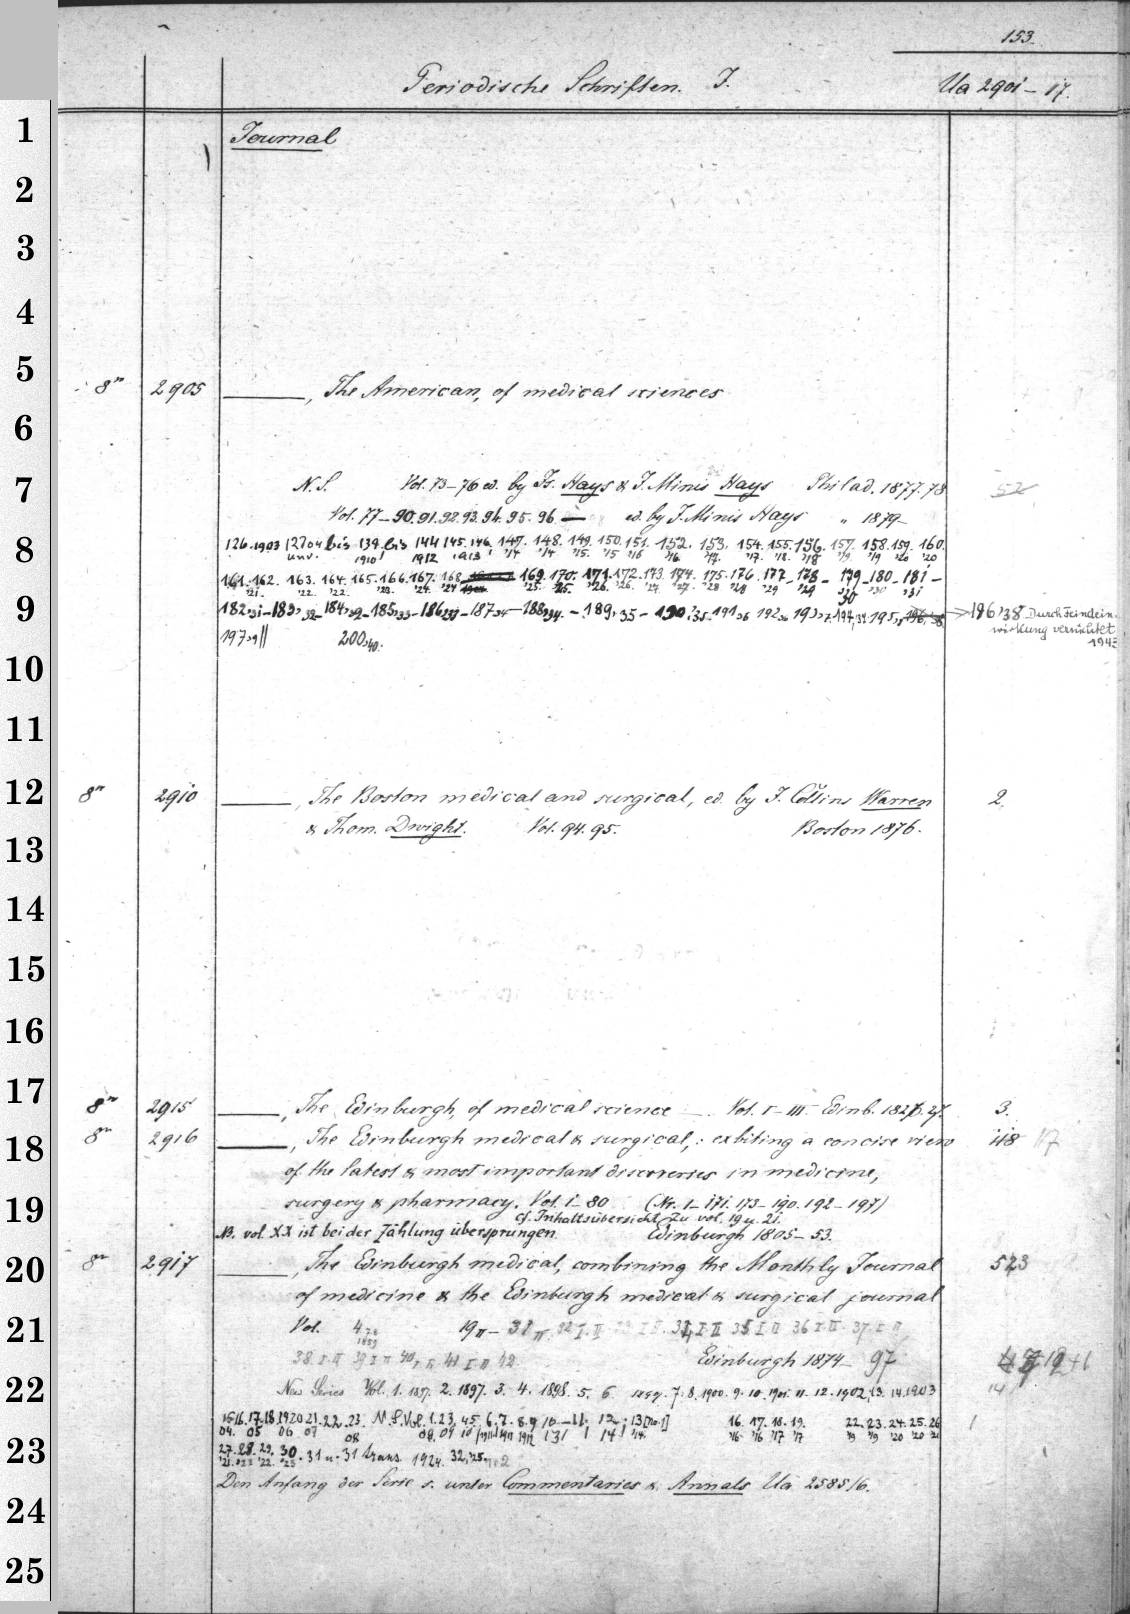 153.
Periodische Schriften. J. Ua 2901–17.
1
Journal
2
3
4
5
8° 2905 ———, The American, of medical sciences
6
7
N.S. Vol. 73–76 ed. by Is. Hays & J. Minis Hays Philad. 1877.78
Vol. 77–90.91.92.93.94.95.96.— ed. by J. Minis Hays " 1879–
8
126.1903 127 04 bis 139. bis 144 145. 146. 147. 148. 149. 150. 151. 152. 153. 154. 155. 156. 157. 158. 159. 160.
unv. 1910 1912 1913 '14 '14 '15. '15 '16 '16. '17. '17. '18. '18 '19 '19 '20 '20
161. 162. 163. 164. 165. 166. 167. 168. 169. 170. 171. 172. 173. 174. 175. 176. 177– 178– 179–180–181–
9
182,31–183,32–184,32–185,33–186,33–187,34–188,34.–189,35–190,35.191,36 192,36 193,37.194,37.195, 196,38 196,38 Durch Feindein-
wirkung vernichtet
1943
197,39 200,40.
10
11
12
8° 2910 ———, The Boston medical and surgical, ed. by J. Collins Warren 2.
& Thom. Dwight. Vol. 94. 95. Boston 1876.
13
14
15
16
17
8° 2915 ———, The Edinburgh, of medical science —. Vol. I–III Edinb. 1826.27. 3.
18
8° 2916 ———, The Edinburgh medical & surgical,: exbiting a concise view 118 117
of the latest & most important discoveries in medicine,
19
surgery & pharmacy. Vol. 1–80 (Nr. 1–171. 173–190. 192–197)
cf. Inhaltsübersicht zu vol. 19 u. 21.
NB. vol. XX ist bei der Zählung übersprungen. Edinburgh 1805–53.
20
8° 2917 ———, The Edinburgh medical, combining the Monthly Journal 523
of medicine & the Edinburgh medical & surgical journal
21
Vol. 4 19 II– 31 II. 32 I. II 34 I–II 35 I II 36 I II 37 I II
38 I II 39 I II 40 I II 41 I II 42 Edinburgh 1874– 97
22
New Series Vol. 1. 1897. 2. 1897. 3. 4. 1898. 5. 6. 1899. 7. 8. 1900. 9. 10. 1901. 11. 12. 1902, 13. 14. 1903 14
15 16. 17. 18. 19 20 21. 22. 23. N.S. Vol. 1. 23. 45. 6. 7. 8. 9 10–11. 12. 13 [No. 1] 16. 17. 18. 19. 22. 23. 24. 25. 26 1
04. 05 06 07 08 08. 09 10 1911 1911 1912 '13 '14 '14. '16 '16 '17 '17 '19 '19 '20 '20 '21
23
27. 28. 29. 30. 31 u. 31 trans. 1924. 32,'25.
Den Anfang der Serie s. unter Commentaries & Annals Ua 2585/6.
24
25